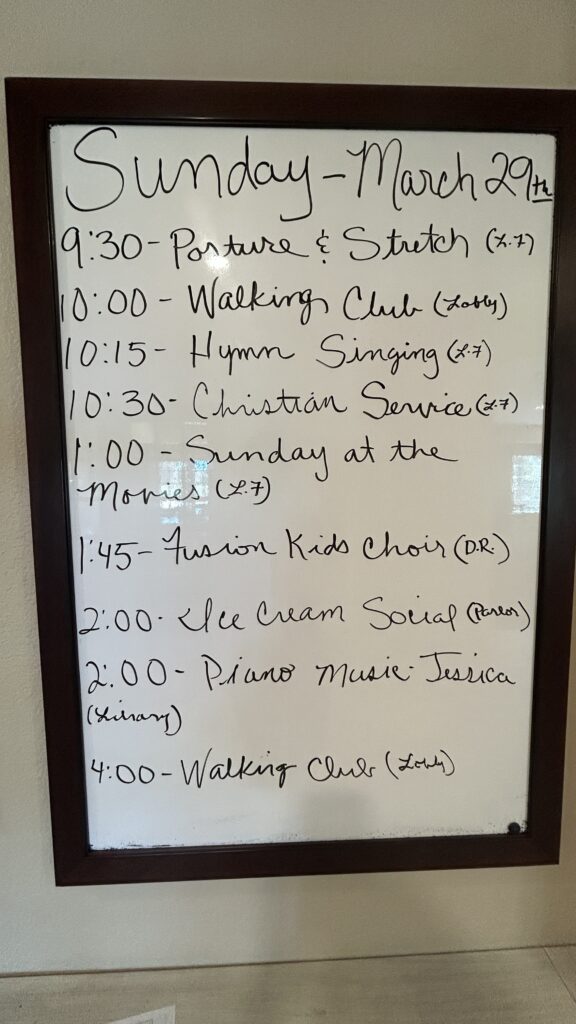 Sunday - March 29th
9:30 - Posture & Stretch (L.7)
10:00 - Walking Club (Lobby)
10:15 - Hymn Singing (L.7)
10:30 - Christian Service (L.7)
1:00 - Sunday at the
Movies (L.7)
1:45 - Fusion Kids Choir (D.R.)
2:00 - Ice Cream Social (Parlor)
2:00 - Piano Music - Jessica
(Library)
4:00 - Walking Club (Lobby)